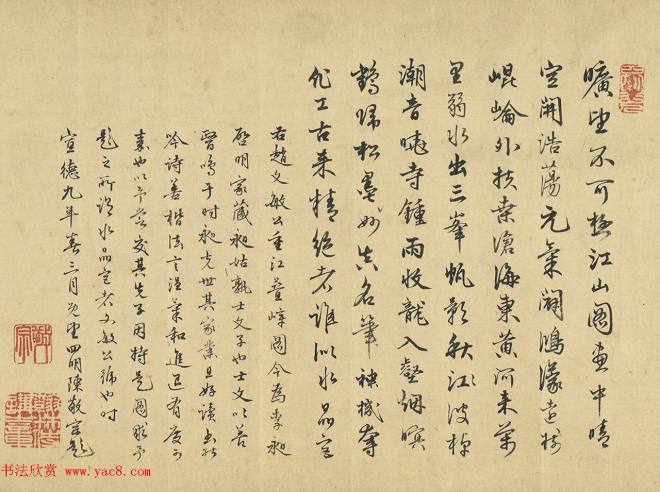 曠望不可極江山圖畫中晴
空開浩蕩元氣闢鴻濛遠樹
崐崘外扶桑滄海東黃河来萬
里弱水出三峯帆影秋江波棹
潮音曉寺鍾雨收龍入壑烟暝
鶴歸松墨妙真名筆神機奪
化工古来精絕者誰似水晶宮
右趙文敏公重江疊嶂圖今為李昶
啓明家藏昶姑孰士文子也士文以善
醫鳴于时昶克世其家業且好讀書能
吟詩善楷法言温氣和進退有度予
素也以予嘗交其先子因持是圖求予
題之所謂水晶宮者文敏公號也时
宣德九年春三月既望四明陳敬宗題
书法欣赏 www.yac8.com